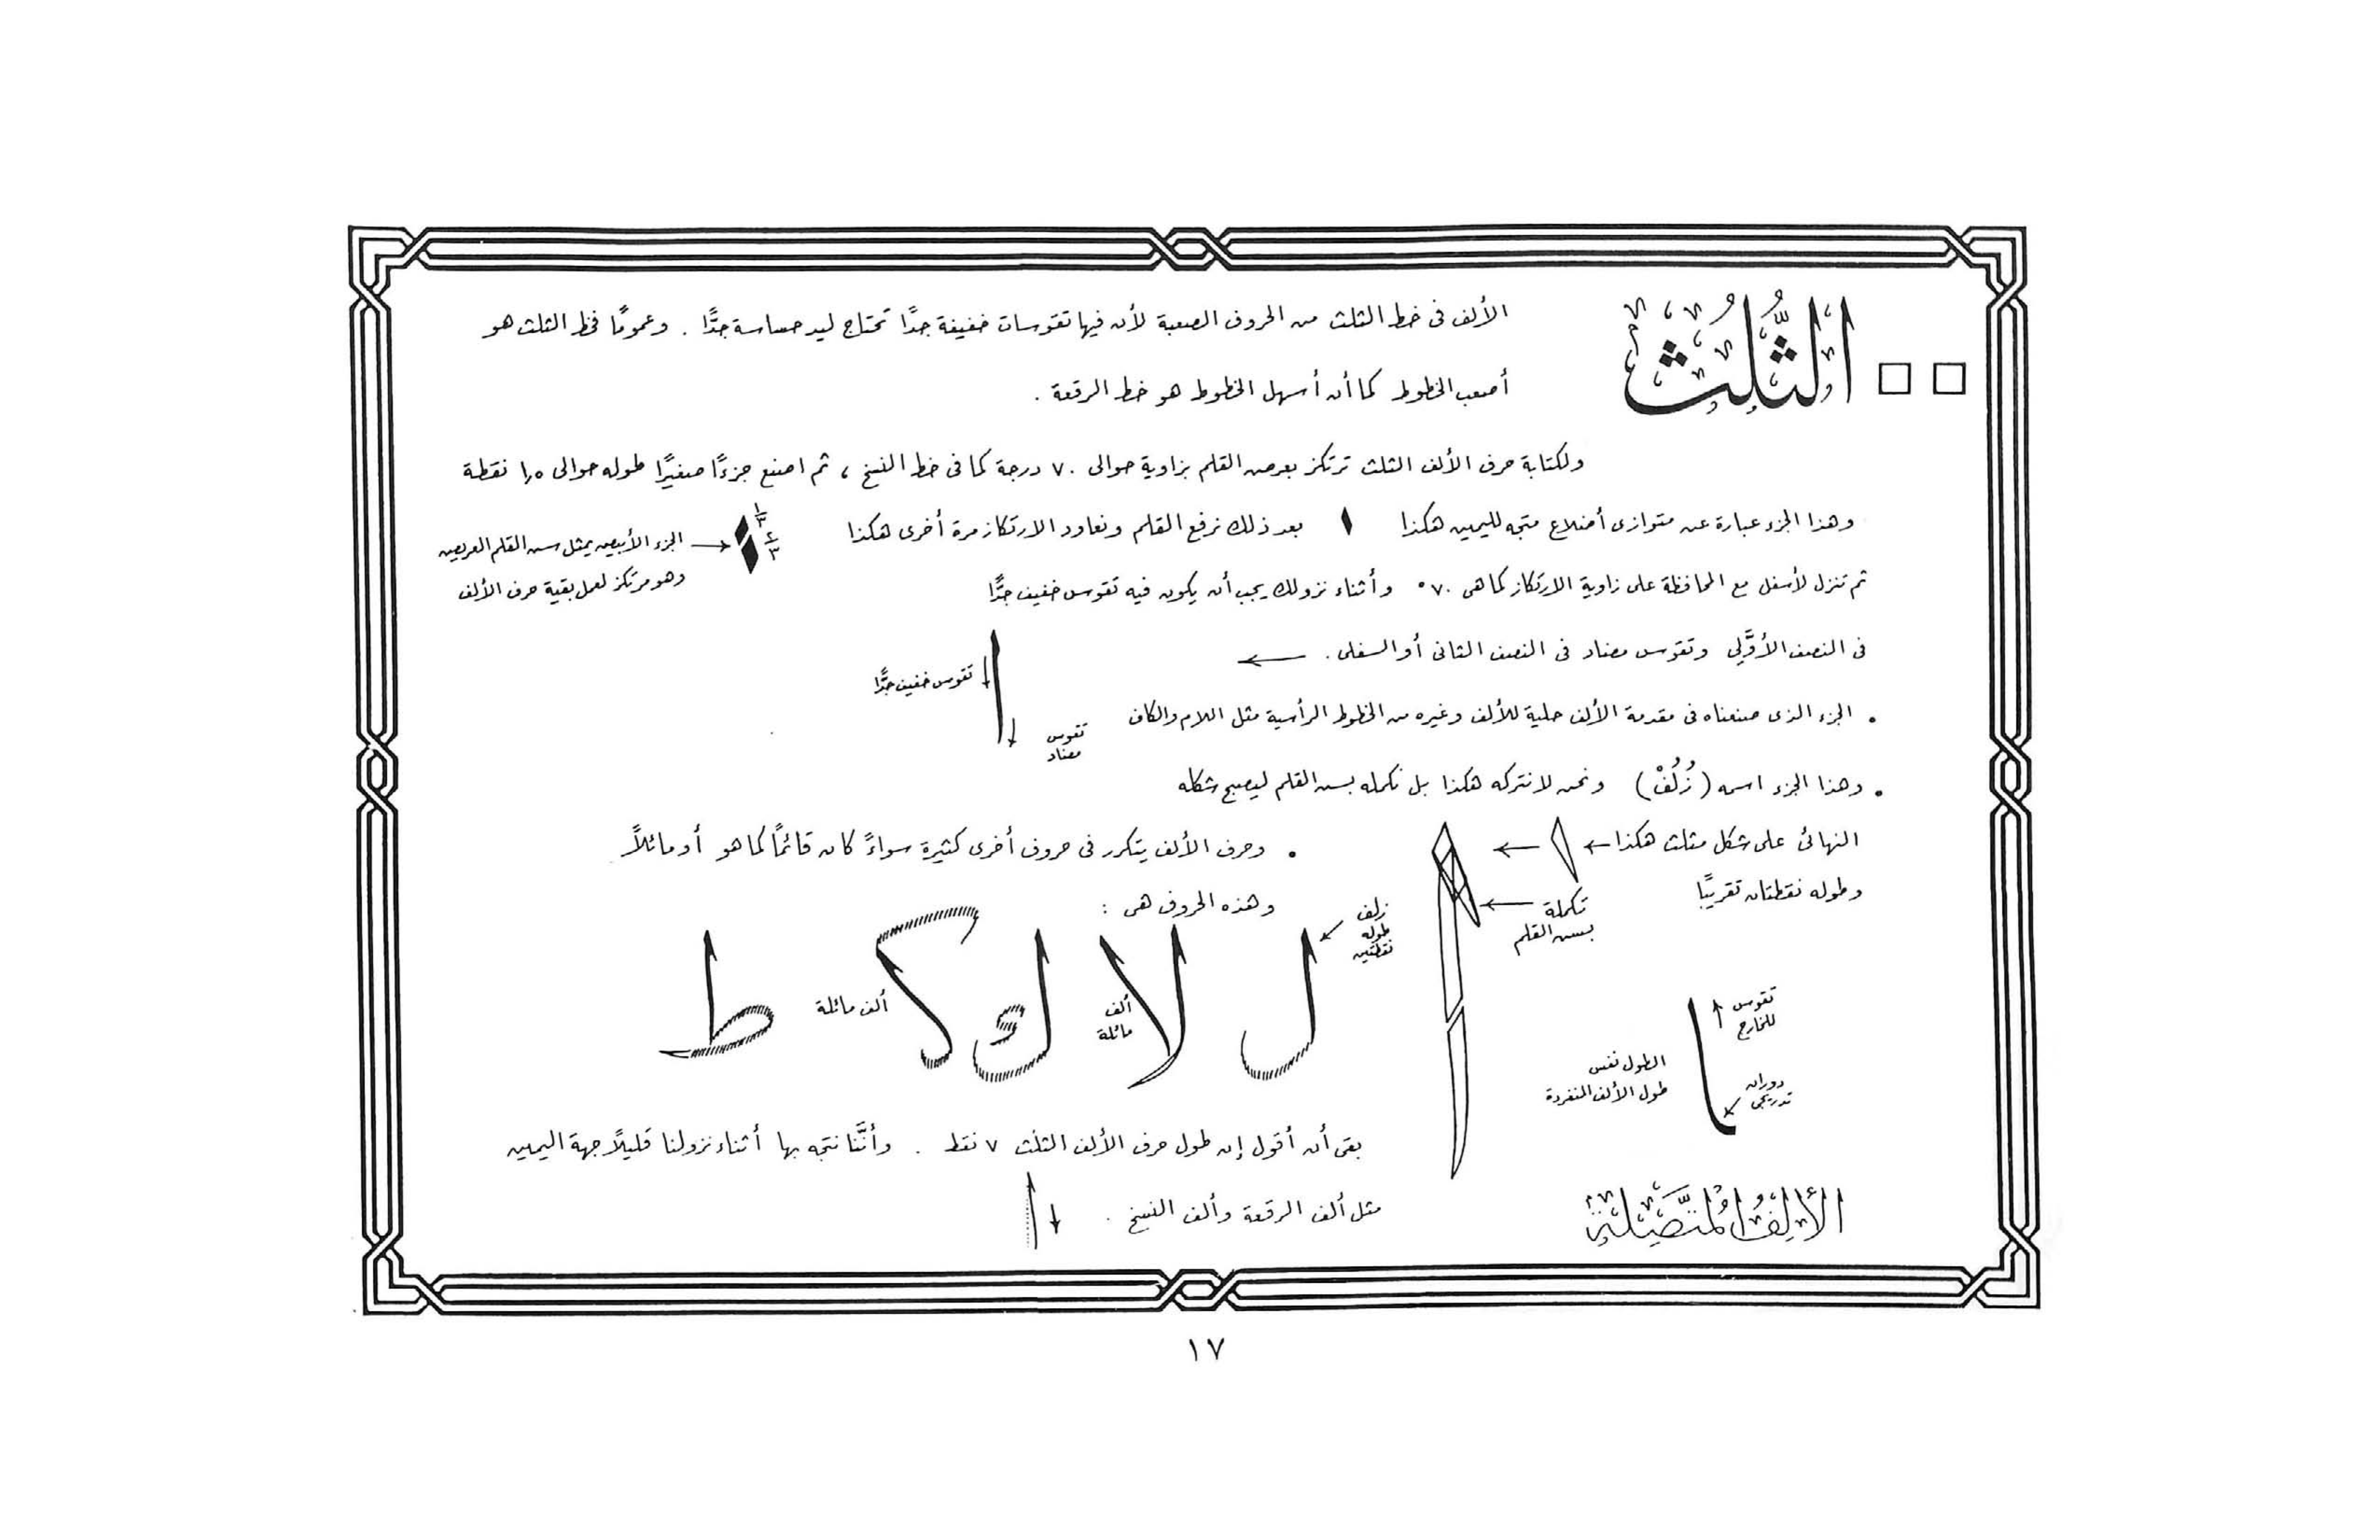 الثُّلُث
الألف فى خط الثلث من الحروف الصعبة لأن فيها تقوسات خفيفة جدًا تحتاج ليد حساسة جدًّا . وعمومًا فخط الثلث هو
أصعب الخطوط كما أن أسهل الخطوط هو خط الرقعة .
ولكتابة حرف الألف الثلث ترتكز بعرض القلم بزاوية حوالى ٧٠ درجة كما فى خط النسخ ، ثم اصنع جزءًا صغيرًا طوله حوالى ١٫٥ نقطة
وهذا الجزء عبارة عن متوازى أضلاع متجه لليمين هكذا بعد ذلك نرفع القلم ونعاود الارتكاز مرة أخرى هكذا
١/٣
٢/٣
الجزء الأبيض يمثل سن القلم العريض
وهو مرتكز لعمل بقية حرف الألف
ثم تنزل لأسفل مع المحافظة على زاوية الارتكاز كما هى ٧٠° وأثناء نزولك يجب أن يكون فيه تقوس خفيف جدًّا
فى النصف الأوَّلى وتقوس مضاد فى النصف الثانى أو السفلى .
تقوس خفيف جدًّا
تقوس
مضاد
• الجزء الذى صنعناه فى مقدمة الألف حلية للألف وغيره من الخطوط الرأسية مثل اللام والكاف
• وهذا الجزء اسمه (زُلُفْ) ونحن لا نتركه هكذا بل نكمله بسن القلم ليصبح شكله
النهائى على شكل مثلث هكذا
وطوله نقطتان تقريبًا
تكملة
بسن القلم
• وحرف الألف يتكرر فى حروف أخرى كثيرة سواءً كان قائمًا كما هو أو مائلاً
وهذه الحروف هى :
زلف
طوله
نقطتين
ل لا ك ك ط
ألف
مائلة
ألف مائلة
تقوس
للخارج
دوران
تدريجى
الطول نفس
طول الألف المنفردة
الألِفُ المُتَّصِلَة
بقى أن أقول إن طول حرف الألف الثلث ٧ نقط . وأنَّنا نتجه بها أثناء نزولنا قليلاً جهة اليمين
مثل ألف الرقعة وألف النسخ .
١٧